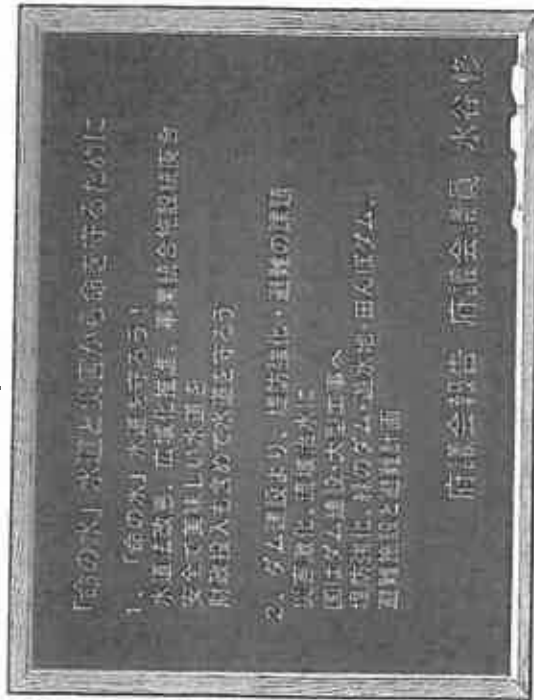 「命の水」水道と災害から命を守るために
1、「命の水」水道を守ろう！
水道法改悪、広域化推進、事業統合施設統廃合
安全で美味しい水道を
財政投入も含めて水道を守ろう
2、ダム建設より、堤防強化・避難の
災害激化、流域治水に
国はダム建設・大型工事へ
堤防強化、緑のダム・遊水池・田んぼダム、
避難施設と避難計画
府議会報告 府議会議員 水谷修